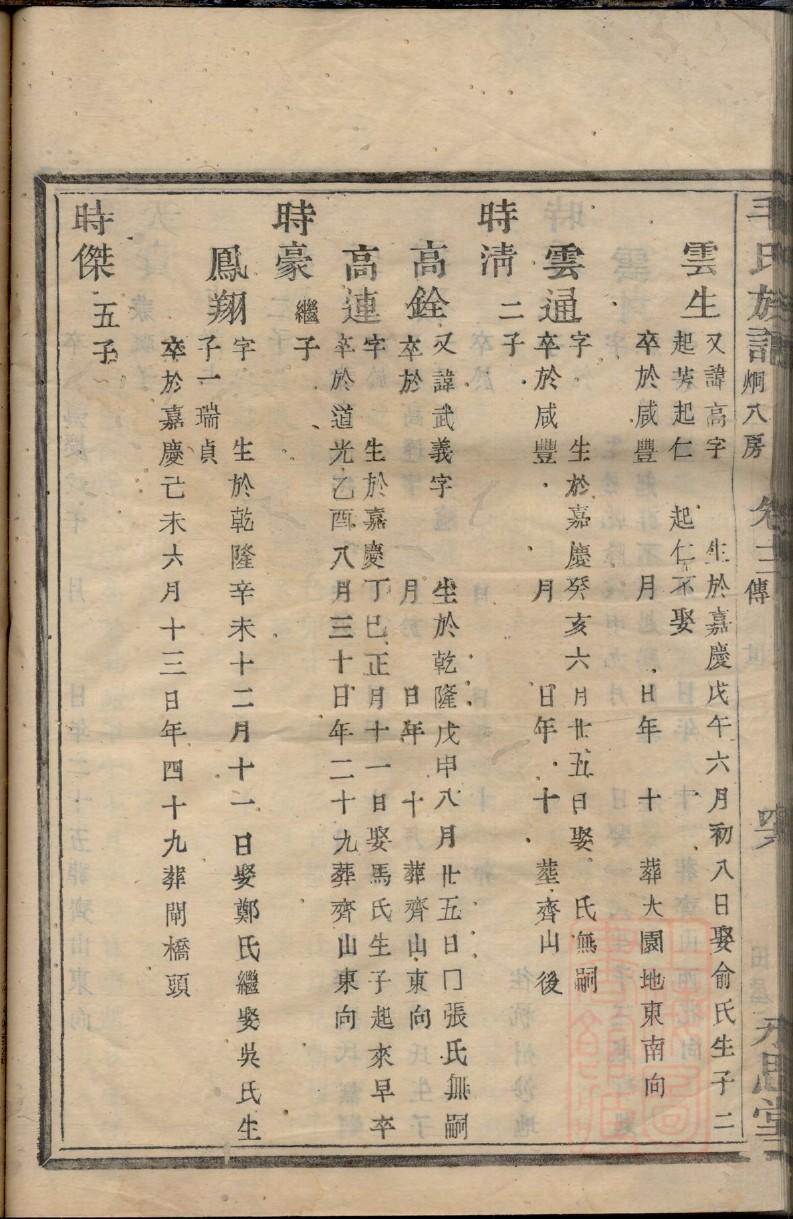 毛氏族譜 炯八房 卷十三 傳 永思堂
雲生 又諱高字 生於嘉慶戊午六月初八日娶俞氏生子二
起芳起仁 起仁不娶
卒於咸豐 月 日年 十 葬大園地東南向
雲通 字 生於嘉慶癸亥六月廿五日娶 氏無嗣
卒於咸豐 月 日年 十 塟齊山後
時淸 二子
高銓 又諱武義字 生於乾隆戊申八月廿五日 張氏無嗣
卒於 月 日年 十 葬齊山東向
高連 字 生於嘉慶丁巳正月十一日娶馬氏生子起來早卒
卒於道光乙酉八月三十日年二十九葬齊山東向
時豪 繼子
鳳翔 字 生於乾隆辛未十二月十一日娶鄭氏繼娶吳氏生
子一瑞貞
卒於嘉慶己未六月十三日年四十九葬閘橋頭
時傑 五子